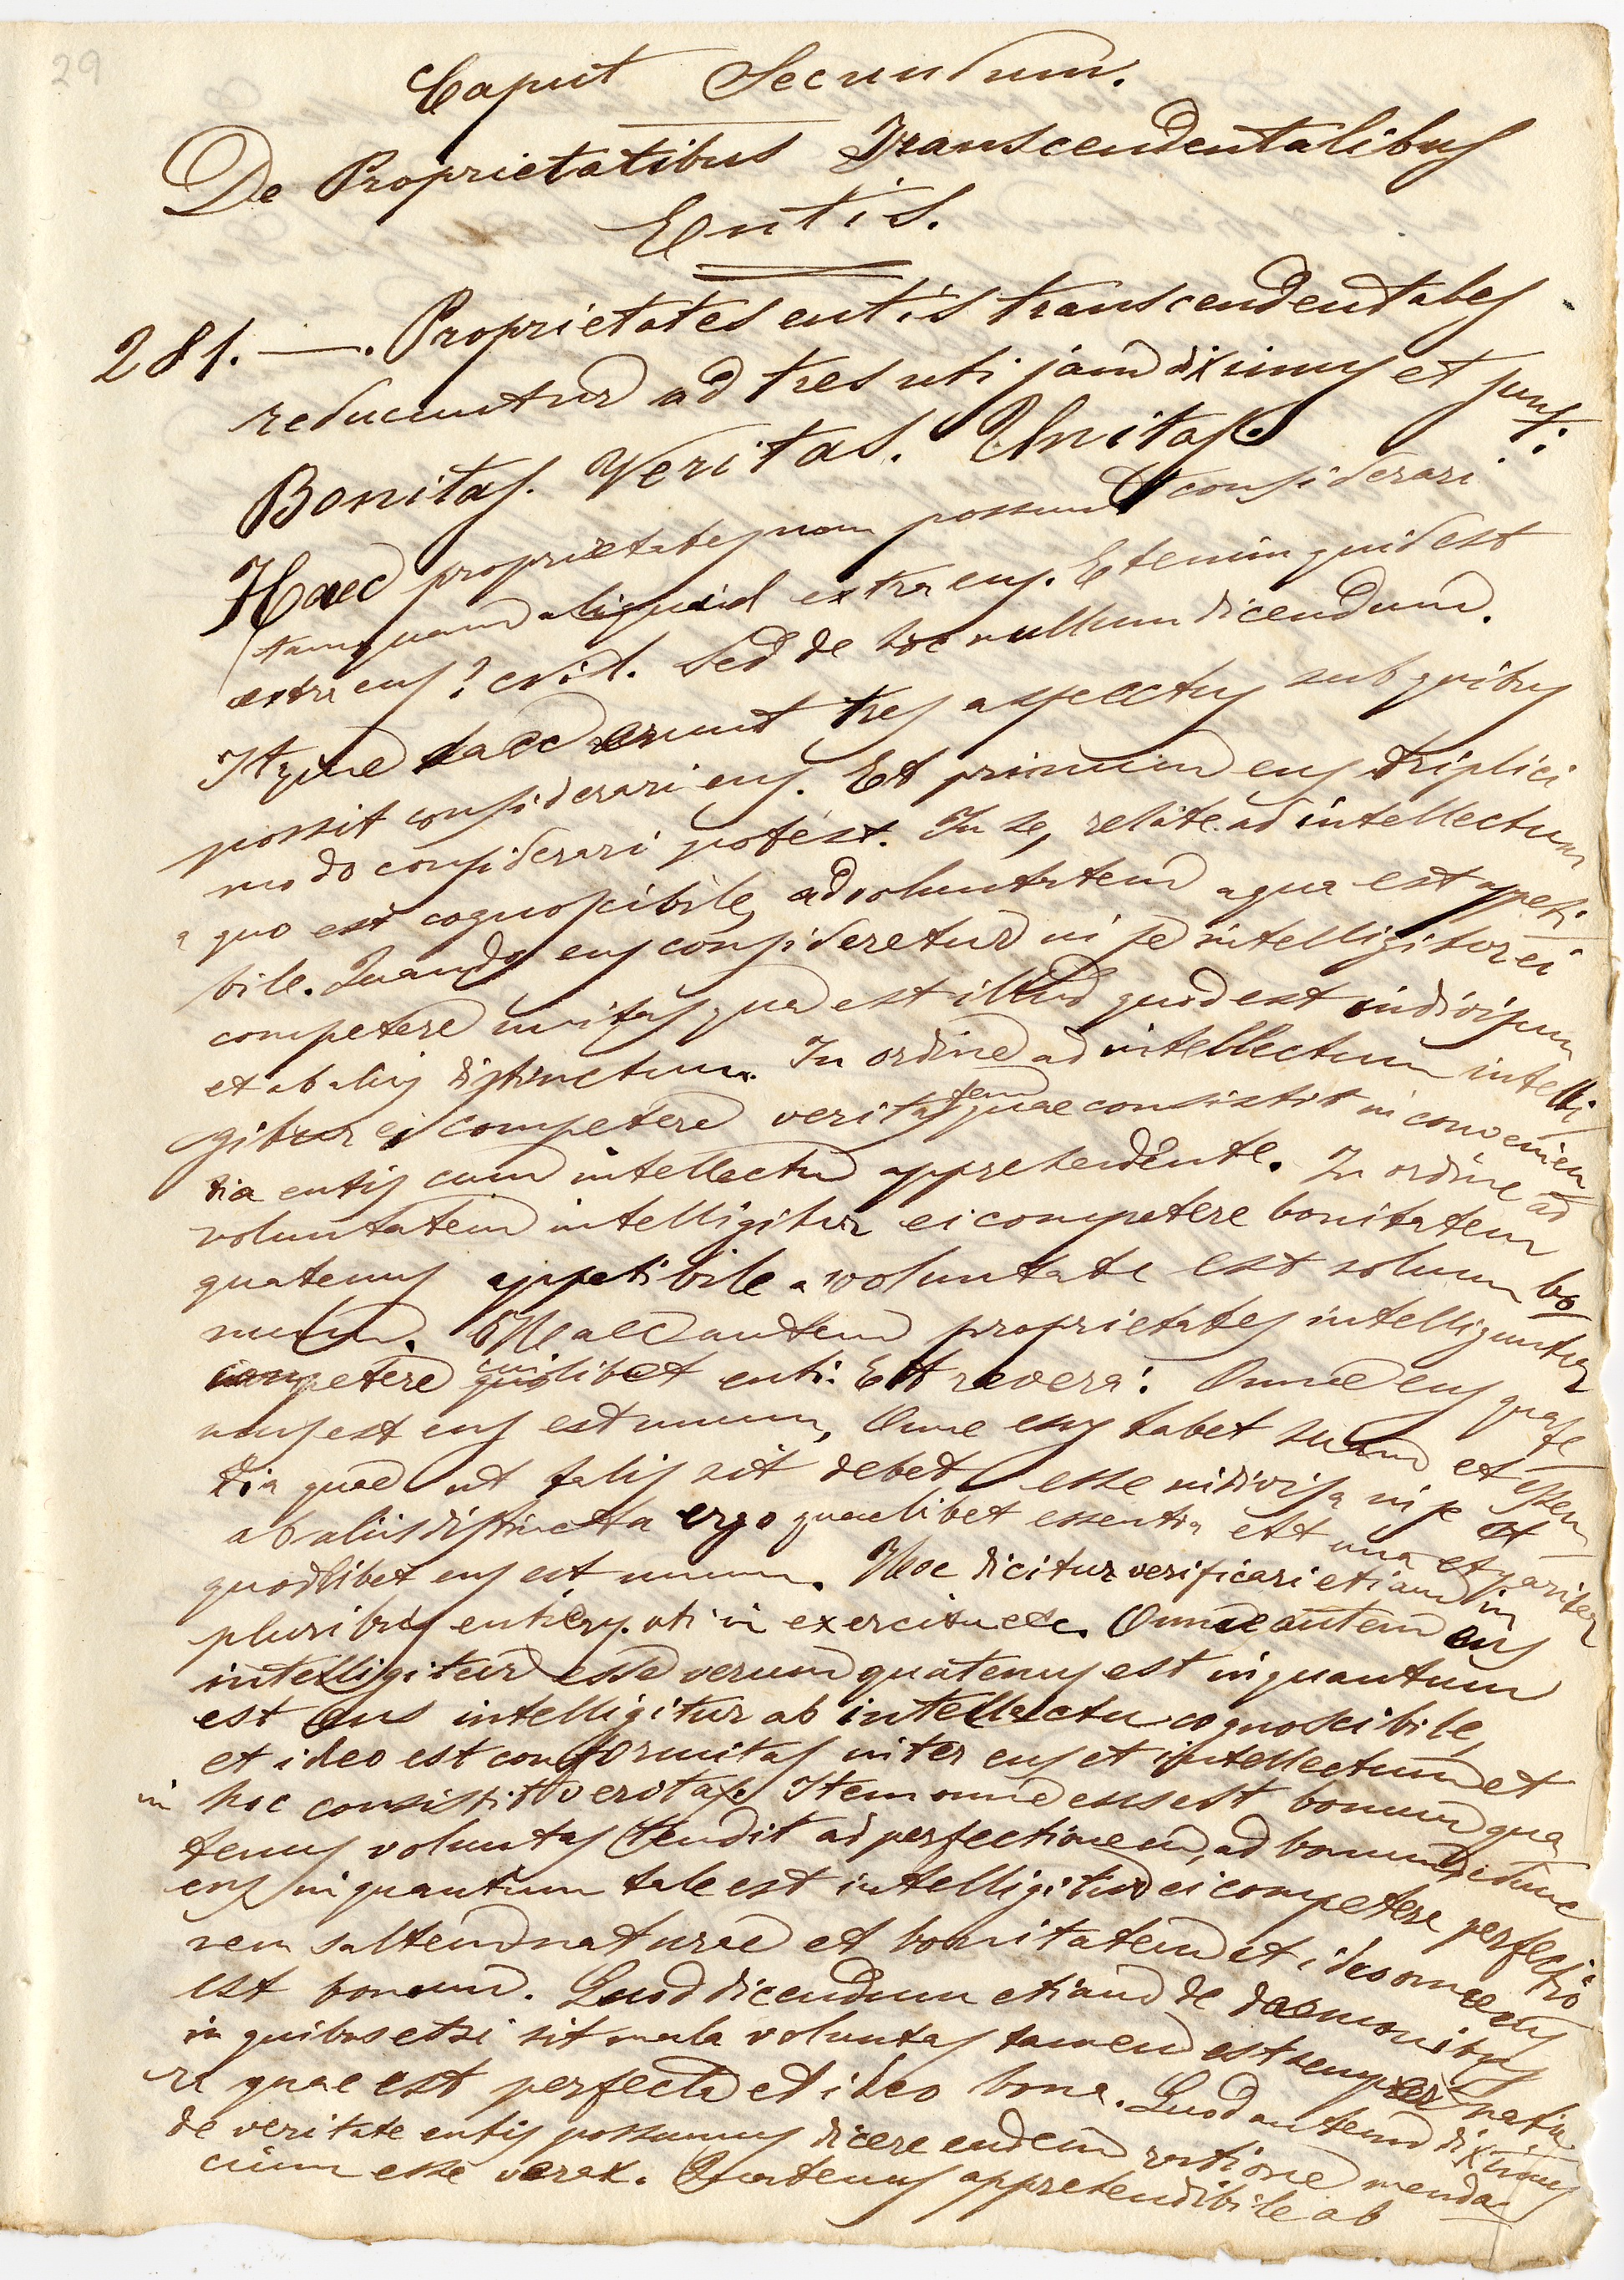 29
Caput Secundum.
De Proprietatibus Transcendentalibus
Entis.
281. —. Proprietates entis transcendentales
reducuntur ad tres uti jam diximus et sunt:
Bonitas. Veritas. Unitas.
Haec proprietates non possunt considerari
tamquam aliquid extra ens. Etenim quid est
extra ens? nihil. Sed de hoc nullum dicendum.
Itaque haec erunt tres aspectus sub quibus
possit considerari ens. Et primum ens triplici
modo considerari potest. In se, relate ad intellectum
a quo est cognoscibile, ad voluntatem a qua est appeti-
bile. Quando ens consideretur in se intelligitur ei
competere unitas quae est illud quod est indivisum
et ab aliis distinctum. In ordine ad intellectum intelli
gitur ei competere veritatem quae consistit in convenien
tia entis cum intellectu apprehendente. In ordine ad
voluntatem intelligitur ei competere bonitatem
quatenus appetibile a voluntate est solum bo
num. Haec autem proprietates intelliguntur
competere cuilibet enti. Et revera: Omne ens quate
nus est ens est unum, Omne ens habet suam et essen
tia quae ut talis sit debet esse indivisa in se et
ab aliis distincta ergo quaelibet essentia est una et pariter
quodlibet ens est unum. Hoc dicitur verificari etiam in
pluribus entibus. uti in exercitu etc. Omne autem ens
intelligitur esse verum quatenus est inquantum
est ens intelligitur ab intellectu cognoscibile,
et ideo est conformitas inter ens et intellectum et
in hoc consistit veritas. Item omne ens est bonum qua
tenus voluntas tendit ad perfectionem, ad bonum
ens in quantum tale est intelligitur ei competere perfectio
nem saltem naturae et bonitatem et ideo omne ens
est bonum. Quod dicendum etiam de daemonibus
in quibus etsi sit mala voluntas tamen est semper natu
ra quae est perfecta et ideo bona. Quod autem diximus
de veritate entis possumus dicere eadem ratione menda
cium esse verax. Quatenus apprehendibile ab